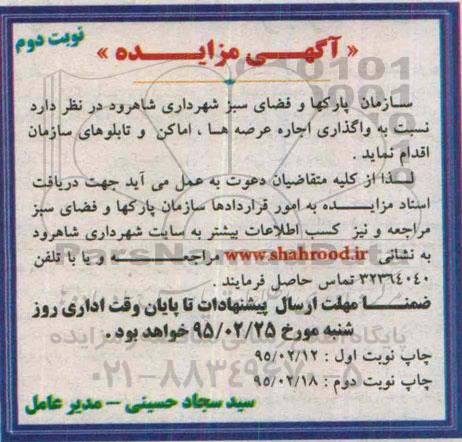 نوبت دوم
« آگهی مزایده »
سازمان پارکها و فضای سبز شهرداری شاهرود در نظر دارد
نسبت به واگذاری اجاره عرصه ها ، اماکن و تابلوهای سازمان
اقدام نماید .
لذا از کلیه متقاضیان دعوت به عمل می آید جهت دریافت
اسناد مزایده به امور قراردادها سازمان پارکها و فضای سبز
مراجعه و نیز کسب اطلاعات بیشتر به سایت شهرداری شاهرود
به نشانی www.shahrood.ir مراجعه و یا با تلفن
۳۲۳۹۴۰۴۰ تماس حاصل فرمایند .
ضمنا مهلت ارسال پیشنهادات تا پایان وقت اداری روز
شنبه مورخ ۹۵/۰۲/۲۵ خواهد بود .
چاپ نوبت اول : ۹۵/۰۲/۱۲
چاپ نوبت دوم : ۹۵/۰۲/۱۸
سید سجاد حسینی – مدیر عامل
۰۲۱-۸۸۳۴۹۶۷۰-۵